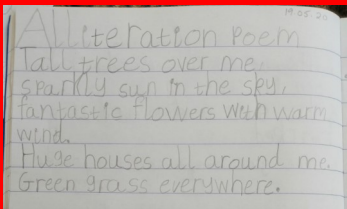 19.05.20
Alliteration Poem
Tall trees over me,
sparkly sun in the sky,
fantastic flowers with warm
wind.
Huge houses all around me.
Green grass everywhere.